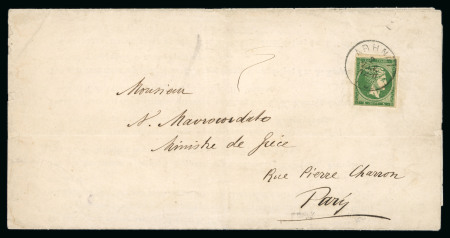 Monsieur
N. Mavrocordato
Ministre de Grèce
Rue Pierre Charron
Paris